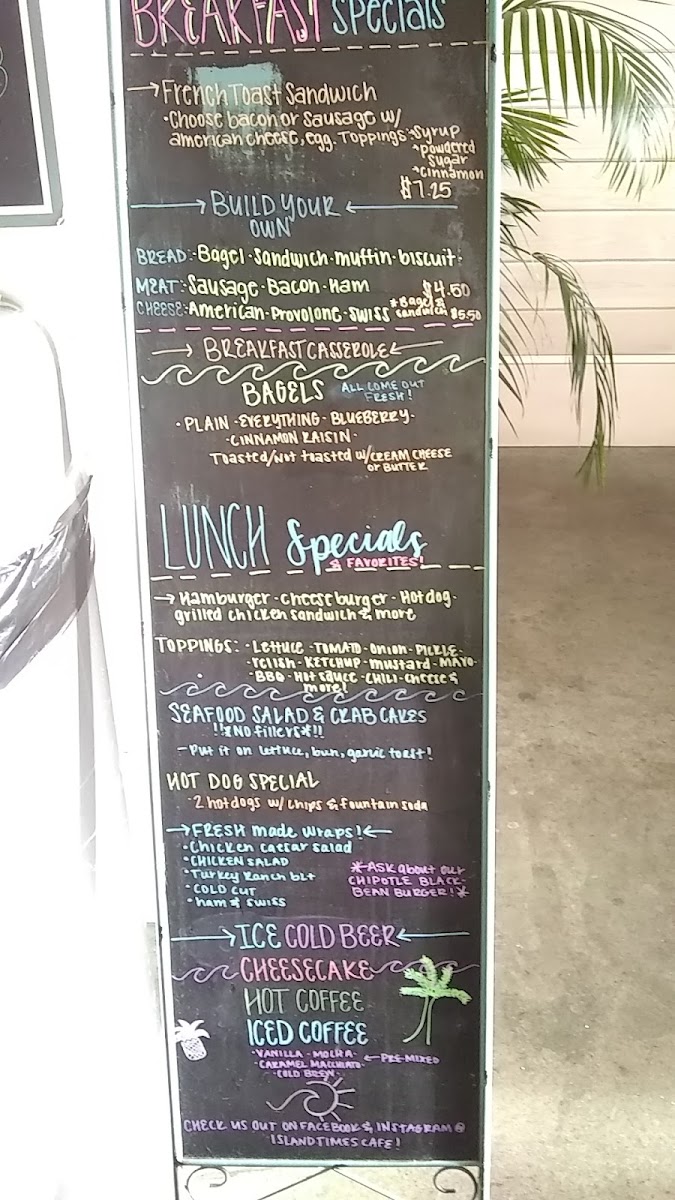 BREAKFAST Specials
→French Toast Sandwich
•Choose bacon or sausage w/
american cheese, egg. Toppings:*syrup
*powdered
sugar
*cinnamon
$7.25
→BUILD YOUR←
OWN
BREAD:•Bagel•Sandwich•muffin•biscuit•
MEAT:•Sausage•Bacon•Ham $4.50
CHEESE:•American•Provolone•Swiss *Bagel &
sandwich $5.50
→BREAKFAST CASSEROLE←
BAGELS ALL COME OUT
FRESH!
•PLAIN•EVERYTHING•BLUEBERRY•
•CINNAMON RAISIN•
Toasted/Not toasted w/CREAM CHEESE
or BUTTER
LUNCH Specials
& FAVORITES!
→Hamburger•cheeseburger•Hotdog•
grilled chicken sandwich & more
TOPPINGS: •Lettuce•TOMATO•onion•PICKLE•
•relish•KETCHUP•mustard•MAYO•
•BBQ•Hot sauce•CHILI•cheese &
more!
SEAFOOD SALAD & CRAB CAKES
!!*NO fillers*!!
—Put it on lettuce, bun, garlic toast!
HOT DOG SPECIAL
-2 hotdogs w/ chips & fountain soda
→FRESH made wraps!←
•Chicken caesar salad
•CHICKEN SALAD
•Turkey Ranch blt
•COLD CUT
•ham & swiss
*ASK about our
CHIPOTLE BLACK
BEAN BURGER!*
→ICE COLD BEER←
CHEESECAKE
HOT COFFEE
ICED COFFEE
•VANILLA•MOCHA• ←PRE-MIXED
CARAMEL MACCHIATO•
•COLD BREW•
CHECK US OUT ON FACEBOOK & INSTAGRAM@
ISLANDTIMESCAFE!